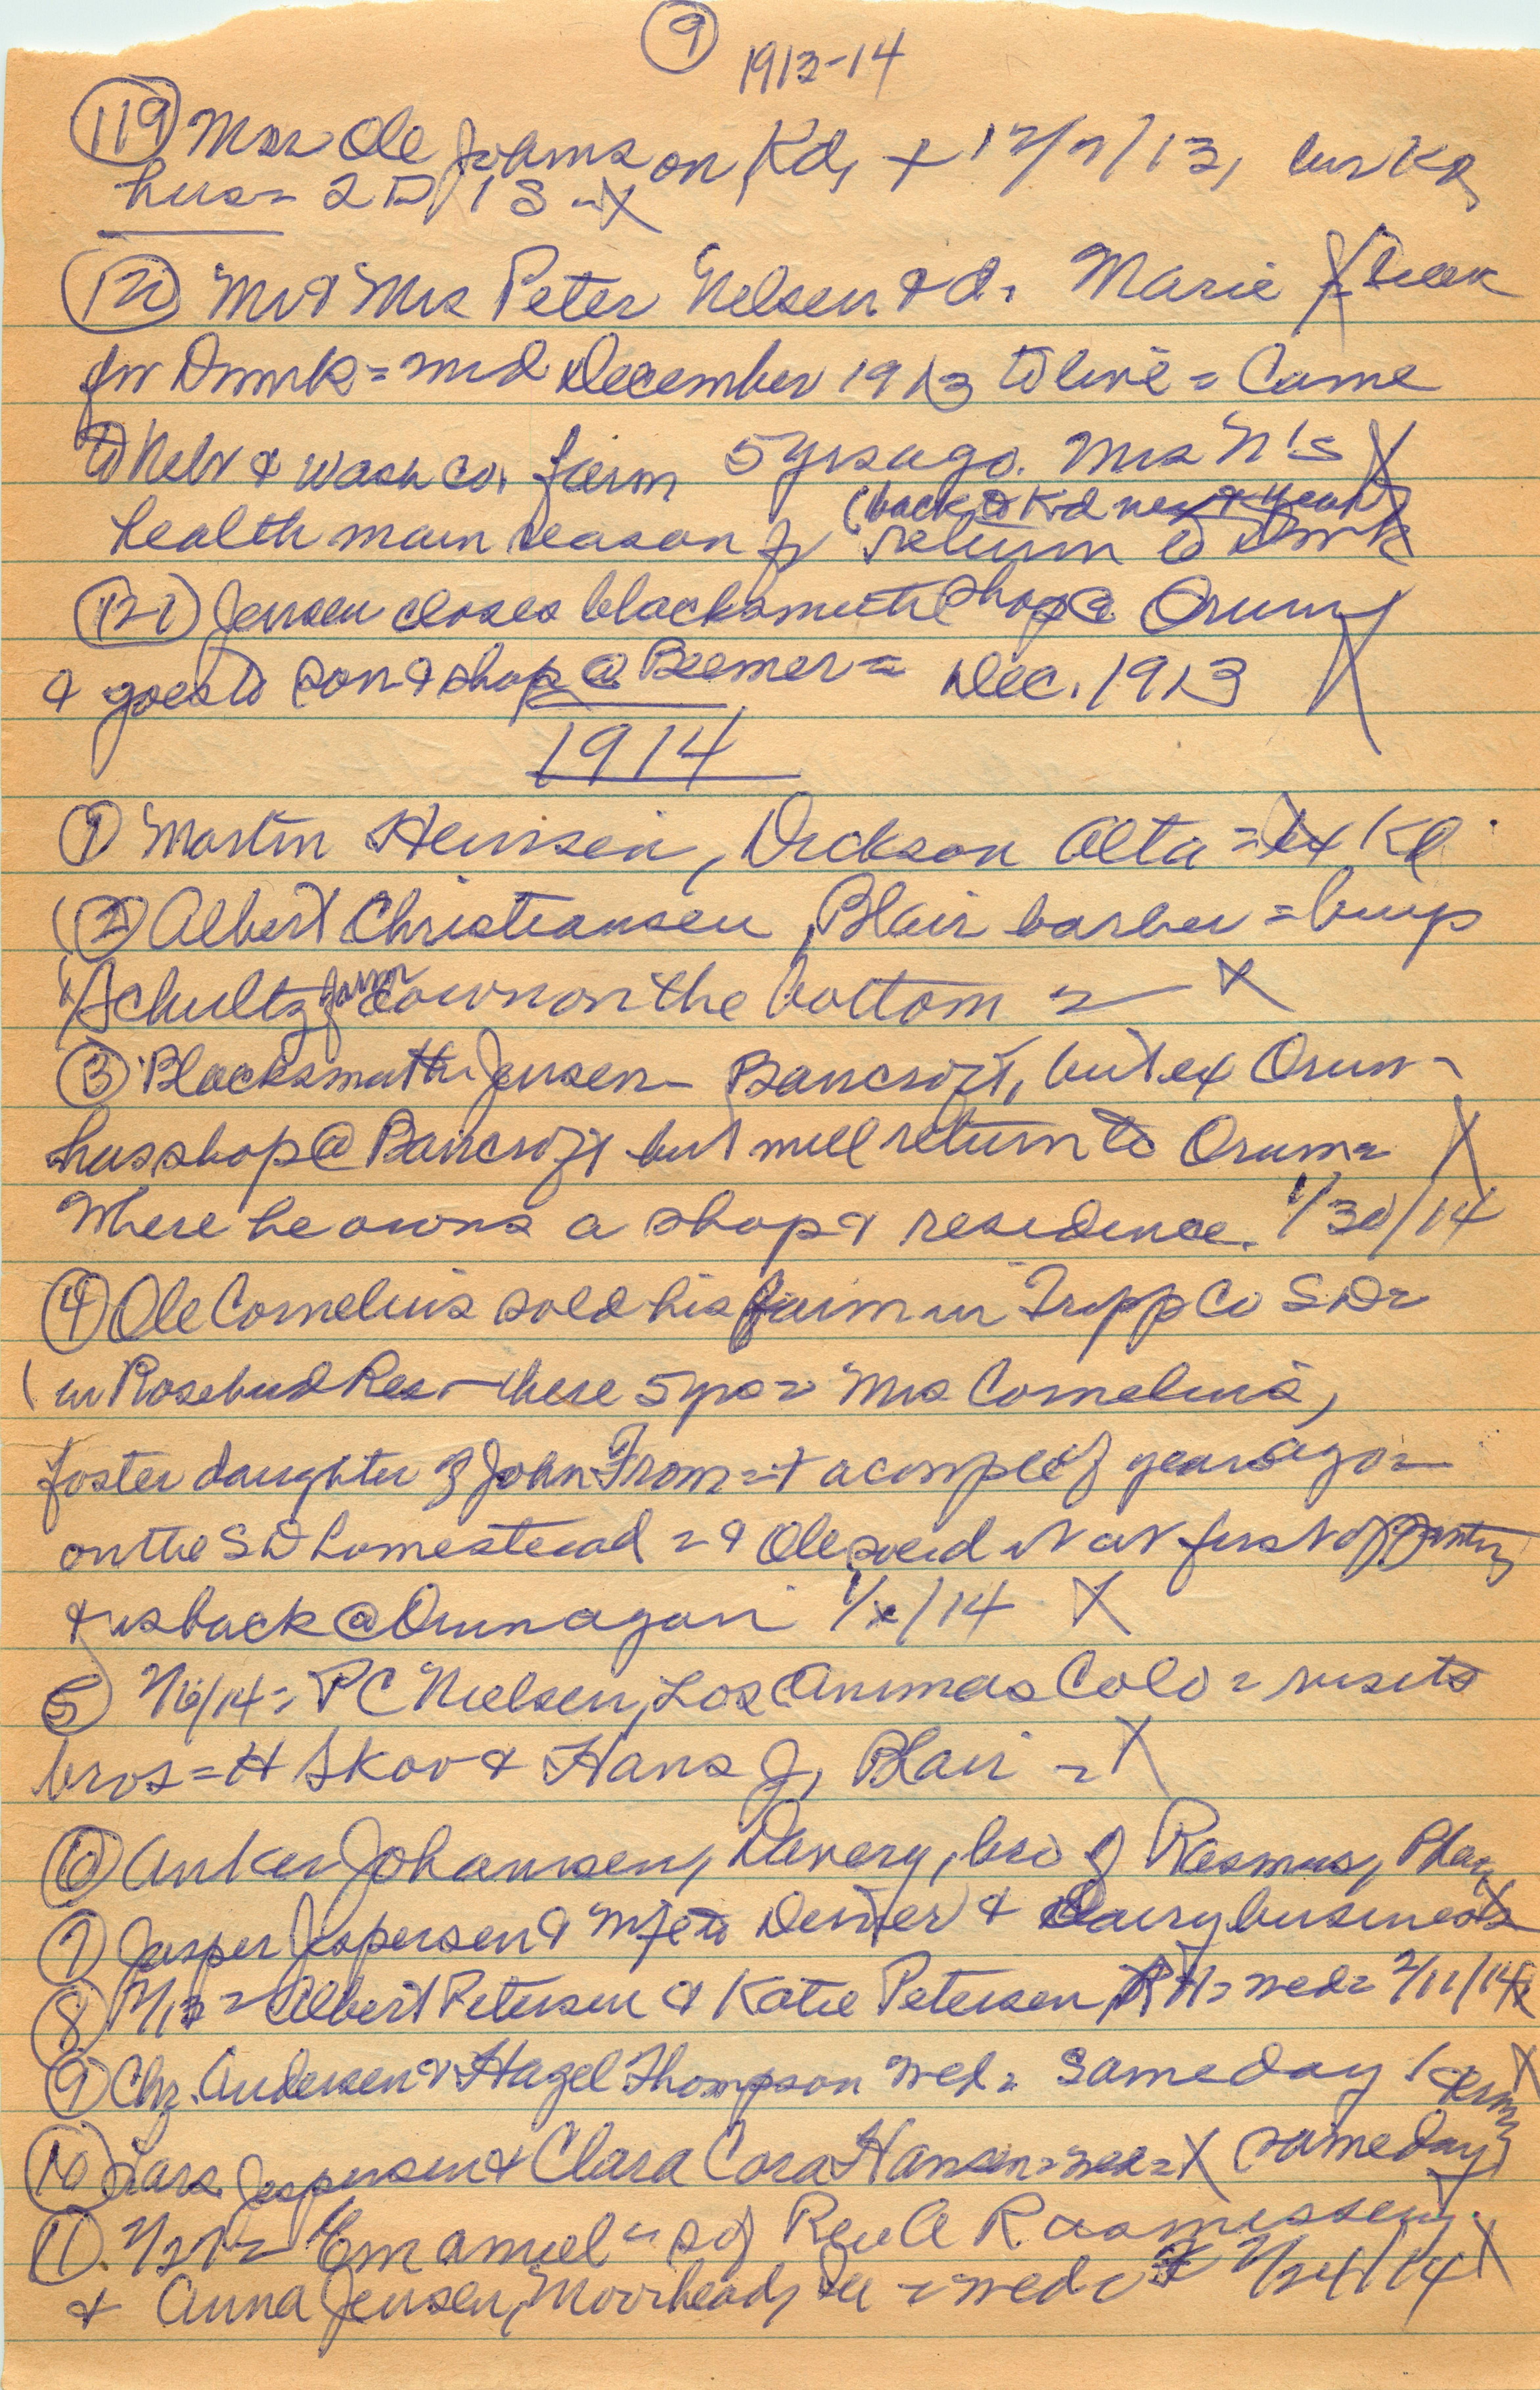 9 1913-14
119 Mrs Ole Johnson, Kd, + 12/2/13, bur Kd
hus = 2 D / 1 S - X
120 Mr & Mrs Peter Nelsen & d. Marie X
for Dnmrk = mid December 1913 to live = Came
to Nebr & Wash Co. farm 5 yrs ago. Mrs N's X
(back to Kd next year)
health main reason for return to Dmrk
121 Jensen closes blacksmith shop @ Orum
& goes to son & shop @ Beemer = Dec. 1913 X
1914
1 Martin Hensen, Dickson Alta = ex Kd
2 Albert Christiansen, Blair barber = buys
Schultz farm down on the bottom = X
3 Blacksmith Jensen - Bancroft, but ex Orum -
has shop @ Bancroft but will return to Orum = X
Where he owns a shop & residence. 1/30/14
4 Ole Cornelius sold his farm in Tripp Co SD =
in Rosebud Res - there 5 yrs = Mrs Cornelius,
foster daughter of John From = + a couple of years ago =
on the SD homestead = & Ole sold it at first of
& is back @ Orum again 1/ /14 X
5 2/6/14 = PC Nielsen, Los Animas Colo = visits
bros = H Skov & Hans J, Blair = X
6 Anker Johansen, Davery, bro of Rasmus, Blair
7 Jasper Jespersen & wife to Denver & dairy business X
8 2/13 = Albert Petersen & Katie Petersen, = wed = 2/11/14 X
9 Chr. Andersen & Hazel Thompson wed = same day X
10 Lars Jespersen & Clara Cora Hansen = wed = X same day
11 2/27 = Emanuel = s of Rev A Rasmussen
& Anna Jensen, Moorhead, = wed = 2/24/14 X